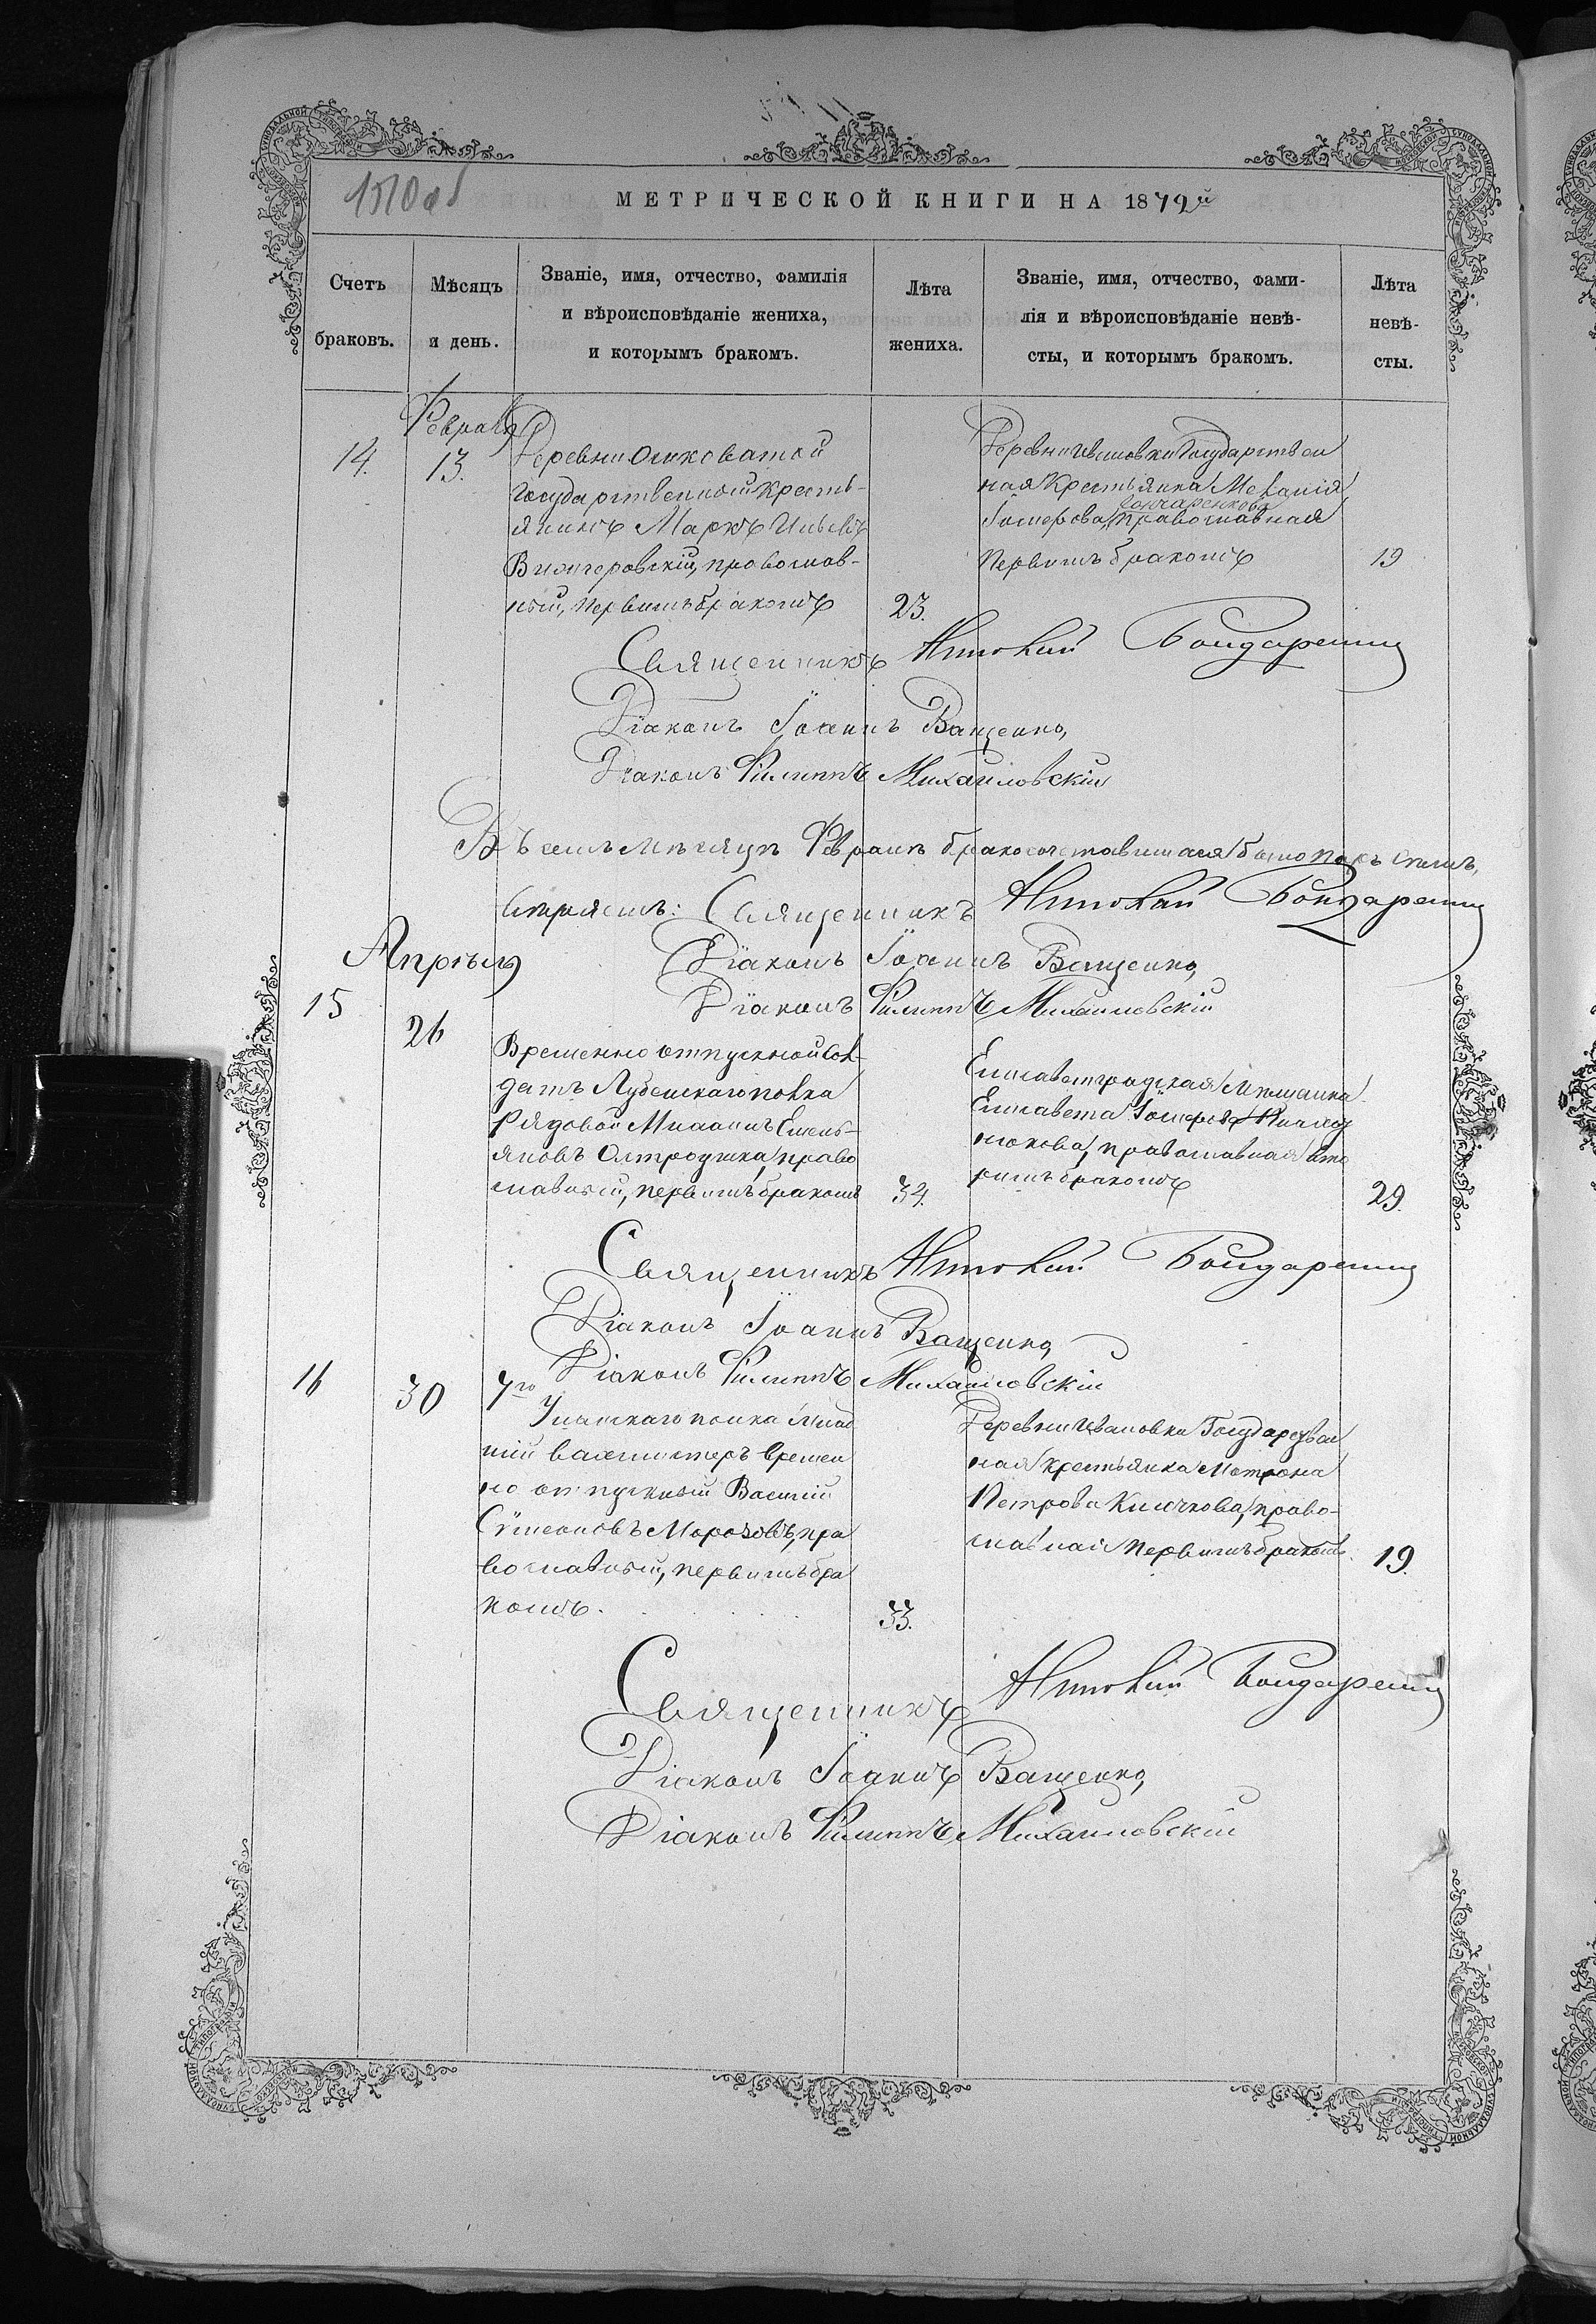 1510 об
МЕТРИЧЕСКОЙ КНИГИ НА 1872й
Счетъ браковъ.
Мѣсяцъ и день.
Званіе, имя, отчество, фамилія
и вѣроисповѣданіе жениха,
и которымъ бракомъ.
Лѣта жениха.
Званіе, имя, отчество, фами-
лія и вѣроисповѣданіе невѣ-
сты, и которымъ бракомъ.
Лѣта невѣ-
сты.
Февраля
14.
13.
Деревни Ольховатой
государственный кресть-
янинъ Маркъ Ильевъ
православ-
ный, первымъ бракомъ
23.
Деревни Ивановки Государствен
ная Крестьянка Меланія
Гончаренкова
православная
первымъ бракомъ
19
Священникъ Антоній Бондаренко
Діаконъ Іоаннъ Ващенко,
Діаконъ Филиппъ Михаиловскій
Въ семъ мѣсяцѣ Февралѣ бракосочетавшихся было паръ
Священникъ Антоній Бондаренко
Апрѣля
Діаконъ Іоаннъ Ващенко,
Діаконъ Филиппъ Михаиловскій
15
26
Временно отпускной сол-
датъ Лубенскаго полка
Рядовой Емель-
яновъ право
славный, первымъ бракомъ
34.
Елисаветградская Мѣщанка
Елисавета
православная вто
рымъ бракомъ
29.
Священникъ Антоній Бондаренко
Діаконъ Іоаннъ Ващенко,
Діаконъ Филиппъ Михаиловскій
16
30
7го
Уланскаго полка Млад
шій вахмистеръ времен
но отпускный Василій
Сѵмеоновъ Морозовъ, пра
вославный, первымъ бра
комъ.
33.
Деревни Ивановки Государствен
ная крестьянка Матрона
Петрова Клочкова, право-
славная первымъ бракомъ.
19.
Священникъ Антоній Бондаренко
Діаконъ Іоаннъ Ващенко,
Діаконъ Филиппъ Михаиловскій